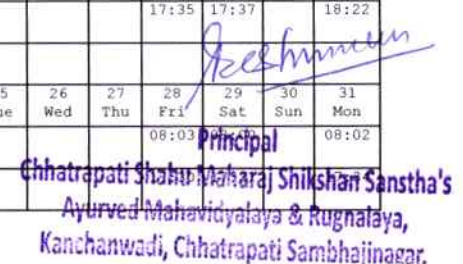 17:35 17:37 18:22
26 27 28 29 30 31
Wed Thu Fri Sat Sun Mon
08:03 08:02
Principal
Chhatrapati Shahu Maharaj Shikshan Sanstha's
Ayurved Mahavidyalaya & Rugnalaya,
Kanchanwadi, Chhatrapati Sambhajinagar.